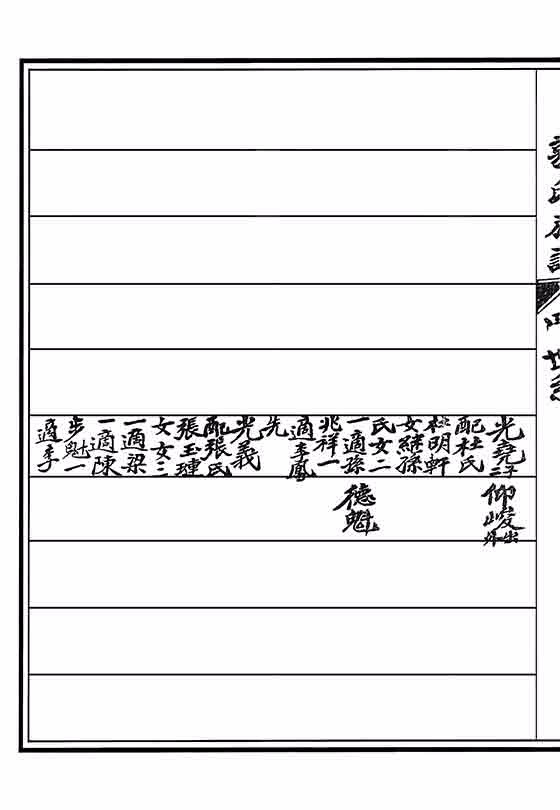 族譜
世系
光堯子二
配杜氏
杜明軒
女繼孫
氏女二
一適孫
兆祥一
適李鳳
先
光義
配張氏
張玉璉
女女三
一適梁
一適陳
步魁一
適李
仰峻出外
德魁